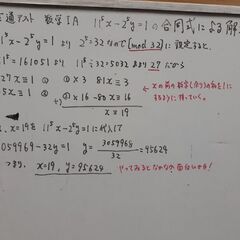 共通テスト 数学IA 11⁵x-2⁵y=1の合同式による解
11⁵x-2⁵y=1より 2⁵=32なので(mod 32)に設定すると、
11⁵=161051より 11⁵÷32=5032あまり27だから
27x≡1 ① ①×3 81x≡3
-5x≡1 ② ②×16 -80x≡16
x≡19
x=19を11⁵x-2⁵y=1に代入して
3059969-32y=1 y=3059968/32=95624
つまり、x=19, y=95624
やってみるとなかなか面白いかも!